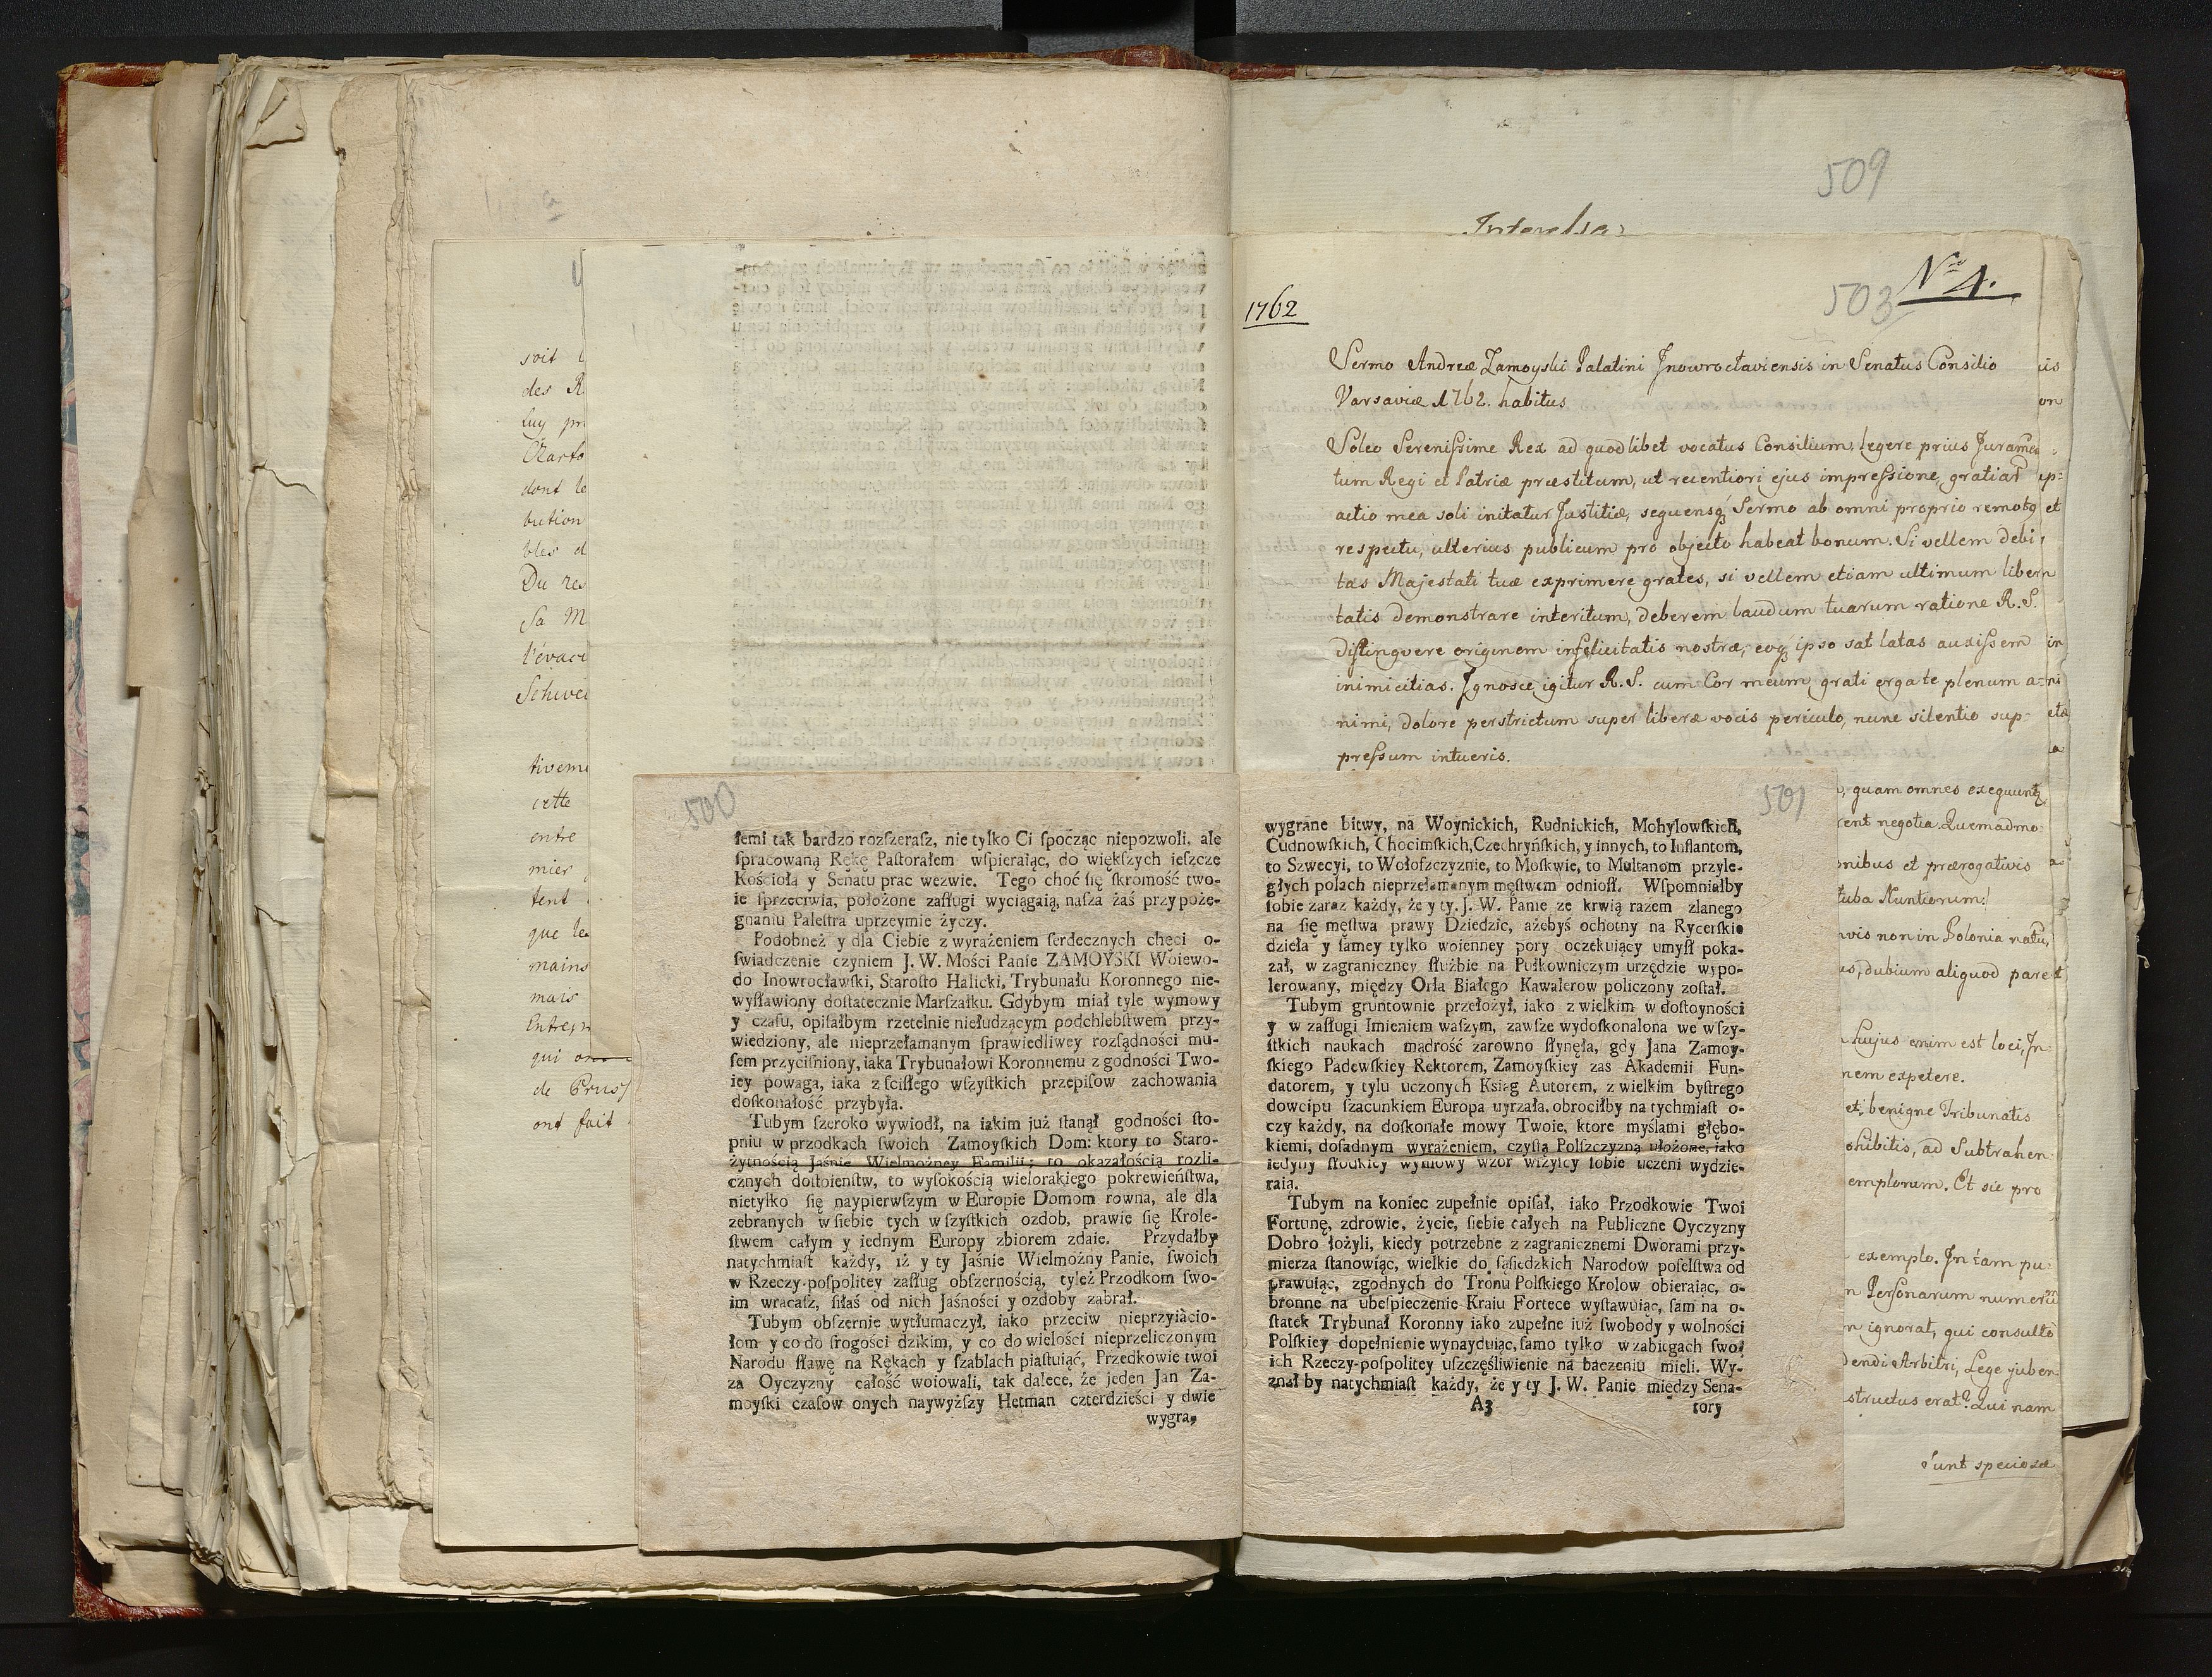 soit
des R
Luy pr
Charto
dont le
bution
bles d
Du res
Sa M
l'évacu
Schwei
tiveme
cette
entre
mier
tent
que les
mains
mais
Entrepr
qui on
de Pruss
ont fait
500
ſemi tak bardzo rozſzeraſz, nie tylko Ci ſpocząc niepozwoli, ale
ſpracowaną Rękę Paſtorałem wſpieraiąc, do więkſzych ieſzcze
Kościoła y Senatu prac wezwie. Tego choć ſię ſkromość two-
ie ſprzeciwia, położone zaſługi wyciągaią, naſza żaś przy poże-
gnaniu Paleſtra uprzeymie życzy.
Podobneż y dla Ciebie z wyrażeniem ſerdecznych chęci o-
świadczenie czyniem J. W. Mości Panie ZAMOYSKI Woiewo-
do Inowrocławſki, Staroſto Halicki, Trybunału Koronnego nie-
wyſławiony doſtatecznie Marſzałku. Gdybym miał tyle wymowy
y czaſu, opiſałbym rzetelnie niełudzącym podchlebſtwem przy-
wiedziony, ale nieprzełamanym ſprawiedliwey rozſądności mu-
ſem przyciſniony, iaka Trybunałowi Koronnemu z godności Two-
iey powaga, iaka z ſciſłego wſzyſtkich przepiſow zachowania
doſkonałość przybyła.
Tubym ſzeroko wywiodł, na iakim już ſtanął godności ſto-
pniu w przodkach ſwoich Zamoyſkich Dom: ktory to Staro-
żytnością Jaśnie Wielmożney Familii; to okazałością rozli-
cznych doſtoienſtw, to wyſokością wielorakiego pokrewieńſtwa,
nietylko ſię naypierwſzym w Europie Domom rowna, ale dla
zebranych w ſiebie tych wſzyſtkich ozdob, prawie ſię Krole-
ſtwem całym y iednym Europy zbiorem zdaie. Przydałby
natychmiaſt każdy, iż y ty Jaśnie Wielmożny Panie, ſwoich
w Rzeczy-poſpolitey zaſług obſzernością, tyleż Przodkom ſwo-
im wracaſz, ſiłaś od nich Jaśności y ozdoby zabrał.
Tubym obſzernie wytłumaczył, iako przeciw nieprzyiacio-
łom y co do ſrogości dzikim, y co do wielości nieprzeliczonym
Narodu ſławę na Rękach y ſzablach piaſtuiąć, Przedkowie twoi
za Oyczyzny całość woiowali, tak dalece, że jeden Jan Za-
moyſki czaſow onych naywyżſzy Hetman czterdzieści y dwie
wygra-
509
Interesſa
Nro 4.
503
1762
Sermo Andreæ Zamoyski Palatini Jnowrocłaviensis in Senatus Consilio
Varsaviæ 1762. habitus
Soleo Sereniſsime Rex ad quodlibet vocatus Consilium, legere prius Juramen
tum Regi et Patriæ præstitum, ut recentiori ejus impreſsione, gratiar
actio mea soli initatur Justitiæ, sequensq; Sermo ab omni proprio remotq
respectu, ulterius publicum pro objecto habeat bonum. Si vellem debi
tas Majestati tuæ exprimere grates, si vellem etiam ultimum liber
tatis demonstrare interitum, deberem laudum tuarum ratione R. S.
diſtinguere originem infelicitatis nostræ, eoq; ipso sat latas auxiſsem
inimicitias. Jgnosce igitur R. S. cum Cor meum grati erga te plenum a-
nimi, dolore perstrictum super liberæ vocis periculo, nunc silentio sup-
preſsum intueris.
501
wygrane bitwy, na Woynickich, Rudnickich, Mohylowſkich,
Cudnowſkich, Chocimſkich, Czechryńſkich, y innych, to Inflantom,
to Szwecyi, to Wołoſzczyznie, to Moſkwie, to Multanom przyle-
głych polach nieprzełamanym męſtwem odnioſł. Wſpomniałby
ſobie zaraz każdy, że y ty J. W. Panie ze krwią razem zlanego
na ſię męſtwa prawy Dziedzic, ażebyś ochotny na Rycerſkie
dzieła y ſamey tylko woienney pory oczekujący umyſł poka-
zał, w zagraniczney ſłużbie na Pułkowniczym urzędzie wypo-
lerowany, między Orła Białego Kawalerow policzony został.
Tubym gruntownie przełożył, iako z wielkim w doſtoyności
y w zaſługi Imieniem waſzym, zawſze wydoſkonalona we wſzy-
ſtkich naukach mądrość zarowno ſłynęła, gdy Jana Zamoy-
ſkiego Padewſkiey Rektorem, Zamoyſkiey zas Akademii Fun-
datorem, y tylu uczonych Ksiąg Autorem, z wielkim byſtrego
dowcipu ſzacunkiem Europa uyrzała. obrociłby na tychmiaſt o-
czy każdy, na doſkonałe mowy Twoie, ktore myślami głębo-
kiemi, doſadnym wyrażeniem, czyſtą Polſzczyzną ułożone, iako
iedyny ſłodkiey wymowy wzor wſzyſcy ſobie uczeni wydzie-
raią.
Tubym na koniec zupełnie opiſał, iako Przodkowie Twoi
Fortunę, zdrowie, życie, ſiebie całych na Publiczne Oyczyzny
Dobro łożyli, kiedy potrzebne z zagranicznemi Dworami przy-
mierza ſtanowiąc, wielkie do ſąſiedzkich Narodow poſelſtwa od
prawuiąc, zgodnych do Tronu Polſkiego Krolow obieraiąc, o-
bronne na ubeſpieczenie Kraiu Fortece wyſtawuiąc, ſam na o-
ſtatek Trybunał Koronny iako zupełne iuż ſwobody y wolności
Polſkiey dopełnienie wynayduiąc, ſamo tylko w zabiegach ſwo-
ich Rzeczy-poſpolitey uſzczęśliwienie na baczeniu mieli. Wy-
znałby natychmiaſt każdy, że y ty J. W. Panie między Sena-
A3 tory
quam omnes exequunt
ent negotia. Quemadmo
nibus et prærogativis
tuba Nuntiorum!
vis non in Polonia natu,
us, dubium aliquod paret
Hujus enim est loci, Jn
nem expetere.
et, benigne Tribunatis
ohibitis, ad Subtrahen
emplorum. Et sic pro
exemplo. Jn tam pu
n Perſonarum numerū
n ignorat, qui consulto
dendi Arbitri, Lege juben
structus erat? Qui nam
Sunt speciosæ